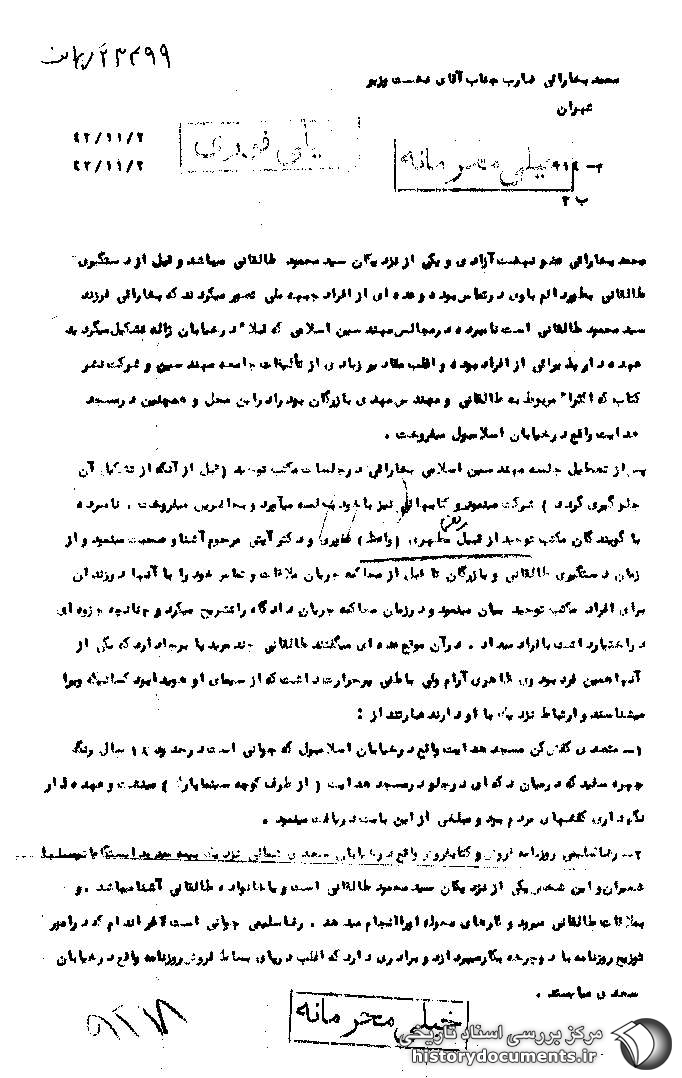 ۲۳۴۹۹
محمد بخارائی ضارب جناب آقای نخست وزیر
تهران
خیلی فوری
۴۲/۱۱/۲
۴۲/۱۱/۲
خیلی محرمانه
محمد بخارائی عضو نهضت آزادی و یکی از نزدیکان سید محمود طالقانی میباشد و قبل از دستگیری
طالقانی بطور دائم باوی در تماس بوده و عده ای از افراد جبهه ملی تصور میکردند که بخارائی فرزند
سید محمود طالقانی است نامبرده در مجالس مهندسین اسلامی که قبلا" در خیابان ژاله تشکیل میگردید
عهده دار پذیرائی از افراد بوده و اغلب مقادیر زیادی از تألیفات جامعه مهندسین و شرکت نشر
کتاب که اکثرا" مربوط به طالقانی و مهندس مهدی بازرگان بود را در این محل و همچنین در مسجد
هدایت واقع در خیابان اسلامبول میفروخت .
پس از تعطیل جلسه مهندسین اسلامی بخارائی در جلسات مکتب توحید (قبل از آنکه از تشکیل آن
جلوگیری گردد ) شرکت مینمود و کتابهائی نیز با خود بجلسه میآورد و بحاضرین میفروخت . نامبرده
با گویندگان مکتب توحید از قبیل مطهری (واعظ) غفوری و دکتر آیتی مرحوم آشنا و صحبت مینمود و از
زمان دستگیری طالقانی و بازرگان تا قبل از محاکمه جریان ملاقات و تماس خود را با آنها در زندان
برای افراد مکتب توحید بیان مینمود و در زمان محاکمه جریان دادگاه را تشریح میکرد و چنانچه جزوه ای
در اختیار داشت بافراد میداد . در آن موقع عده ای میگفتند طالقانی چند مرید پا برجا دارد که یکی از
آنها همین فرد بود وی ظاهری آرام ولی باطنی پرحرارت داشت که از سیمای او هویدا بود کسانیکه ویرا
میشناسند و ارتباط نزدیک با او دارند عبارتند از :
۱- متصدی کفش کن مسجد هدایت واقع در خیابان اسلامبول که جوانی است در حدود ۱۸ سال رنگ
چهره سفید که در میان دکه ای در جلو در مسجد هدایت ( از طرف کوچه سینما پارک ) مینشست و عهده دار
نگهداری کفشهای مردم بود و مبلغی از این بابت دریافت مینمود .
۲- رضا سلیمی روزنامه فروش و کتابفروش واقع در خیابان سعدی شمالی نزدیک
شمیران و این شخص یکی از نزدیکان سید محمود طالقانی است و با خانواده طالقانی آشنا میباشد . و
بملاقات طالقانی میرود و کارهای محوله او را انجام میدهد . رضا سلیمی جوانی است لاغر اندام که در امور
توزیع روزنامه با دوچرخه بکار میپردازد و برادری دارد که اغلب در پای بساط فروش روزنامه واقع در خیابان
سعدی میایستد .
خیلی محرمانه
مرکز بررسی اسناد تاریخی
historydocuments.ir